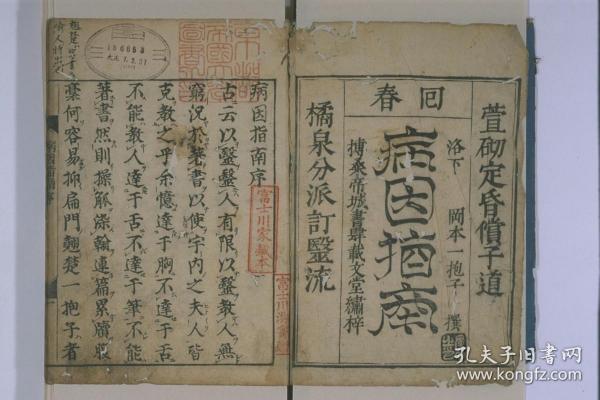 回春
萱砌定昏償子道
洛下 岡本一抱子 撰
病因指南
搏桑帝城書肆載文堂繡梓
橘泉分派訂毉流
病因指南序
古云以毉毉人有限以毉教人無
窮況於著書以使宇内之夫人皆
克教之乎余憶達于胸不達于舌
不能教人達于舌不達于筆不能
著書然則操觚染翰連篇累牘
棄何容易抑扁門翹楚一抱子者
富士川家藏本
186663
孔夫子旧书网
www.kongfz.com